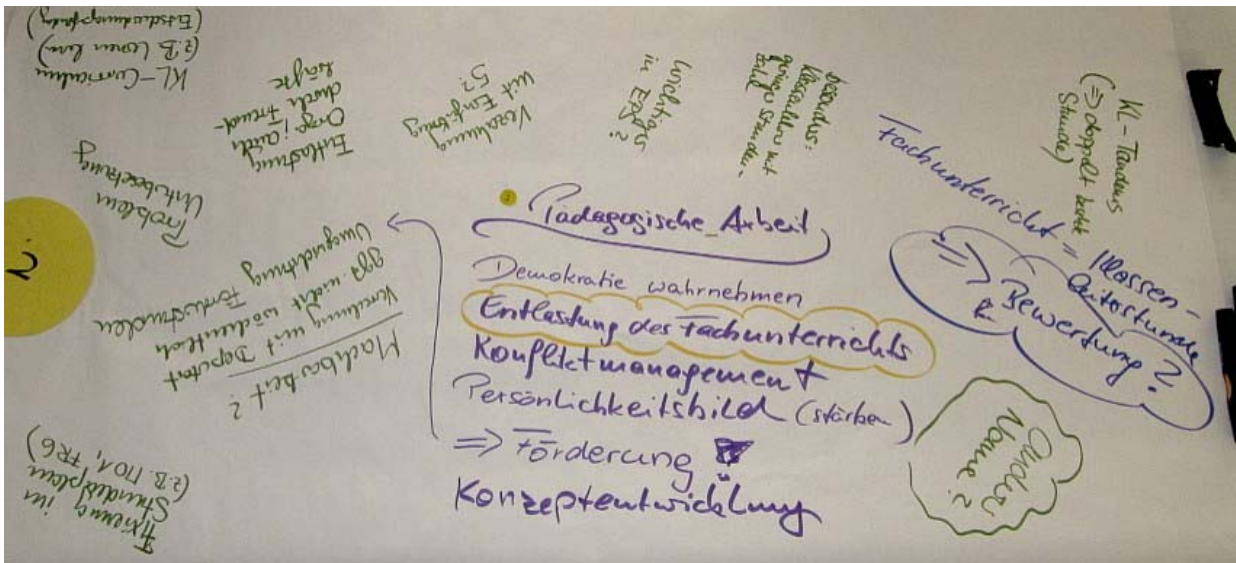 Pädagogische Arbeit
Demokratie wahrnehmen
Entlastung des Fachunterrichts
Konfliktmanagement
Persönlichkeitsbild (stärken)
=> Förderung
Konzeptentwicklung
Fachunterricht = Klassen-
leiterstunde
=> Bewertung?
Andere
Name?
KL-Tandems
(=> doppelt besetzte
Stunde)
besonders:
Klassenleiter mit
geringer Stunden-
zahl
Wichtiges
in EPS?
Verzahnung
mit Einführung
5?
Entlastung
Orga: auch
durch Freund-
KL-Curriculum
(z.B. Lernen lernen)
Problem
Unterbesetzung
Machbarkeit?
Verrechnung mit Deputat
ggf. nicht wöchentlich
Umwandlung Förderstunden
Fixierung im
Stundenplan
(z.B. MO1, FR6)
2.